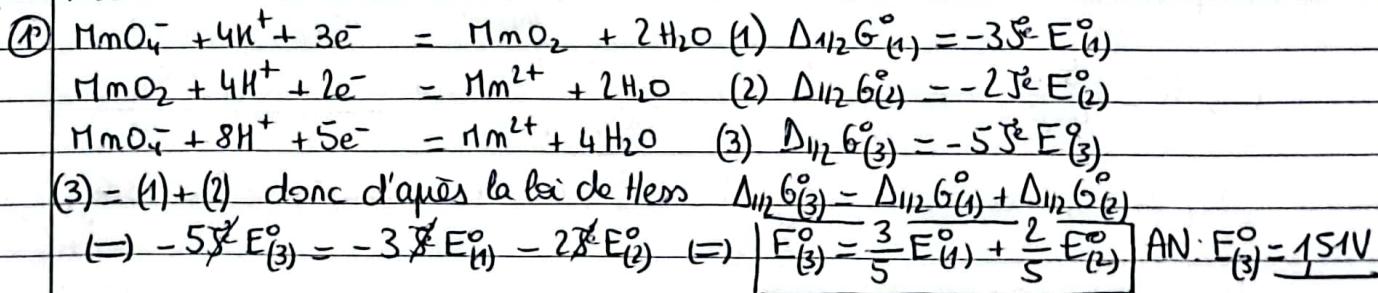 ① MnO₄⁻ + 4H⁺ + 3e⁻ = MnO₂ + 2H₂O (1) Δ1/2G°(1) = -3ℱE°(1)
MnO₂ + 4H⁺ + 2e⁻ = Mn²⁺ + 2H₂O (2) Δ1/2G°(2) = -2ℱE°(2)
MnO₄⁻ + 8H⁺ + 5e⁻ = Mn²⁺ + 4H₂O (3) Δ1/2G°(3) = -5ℱE°(3)
(3) = (1) + (2) donc d'après la loi de Hess Δ1/2G°(3) = Δ1/2G°(1) + Δ1/2G°(2)
(=) -5ℱE°(3) = -3ℱE°(1) - 2ℱE°(2) (=) E°(3) = 3/5 E°(1) + 2/5 E°(2) AN: E°(3) = 1,51V